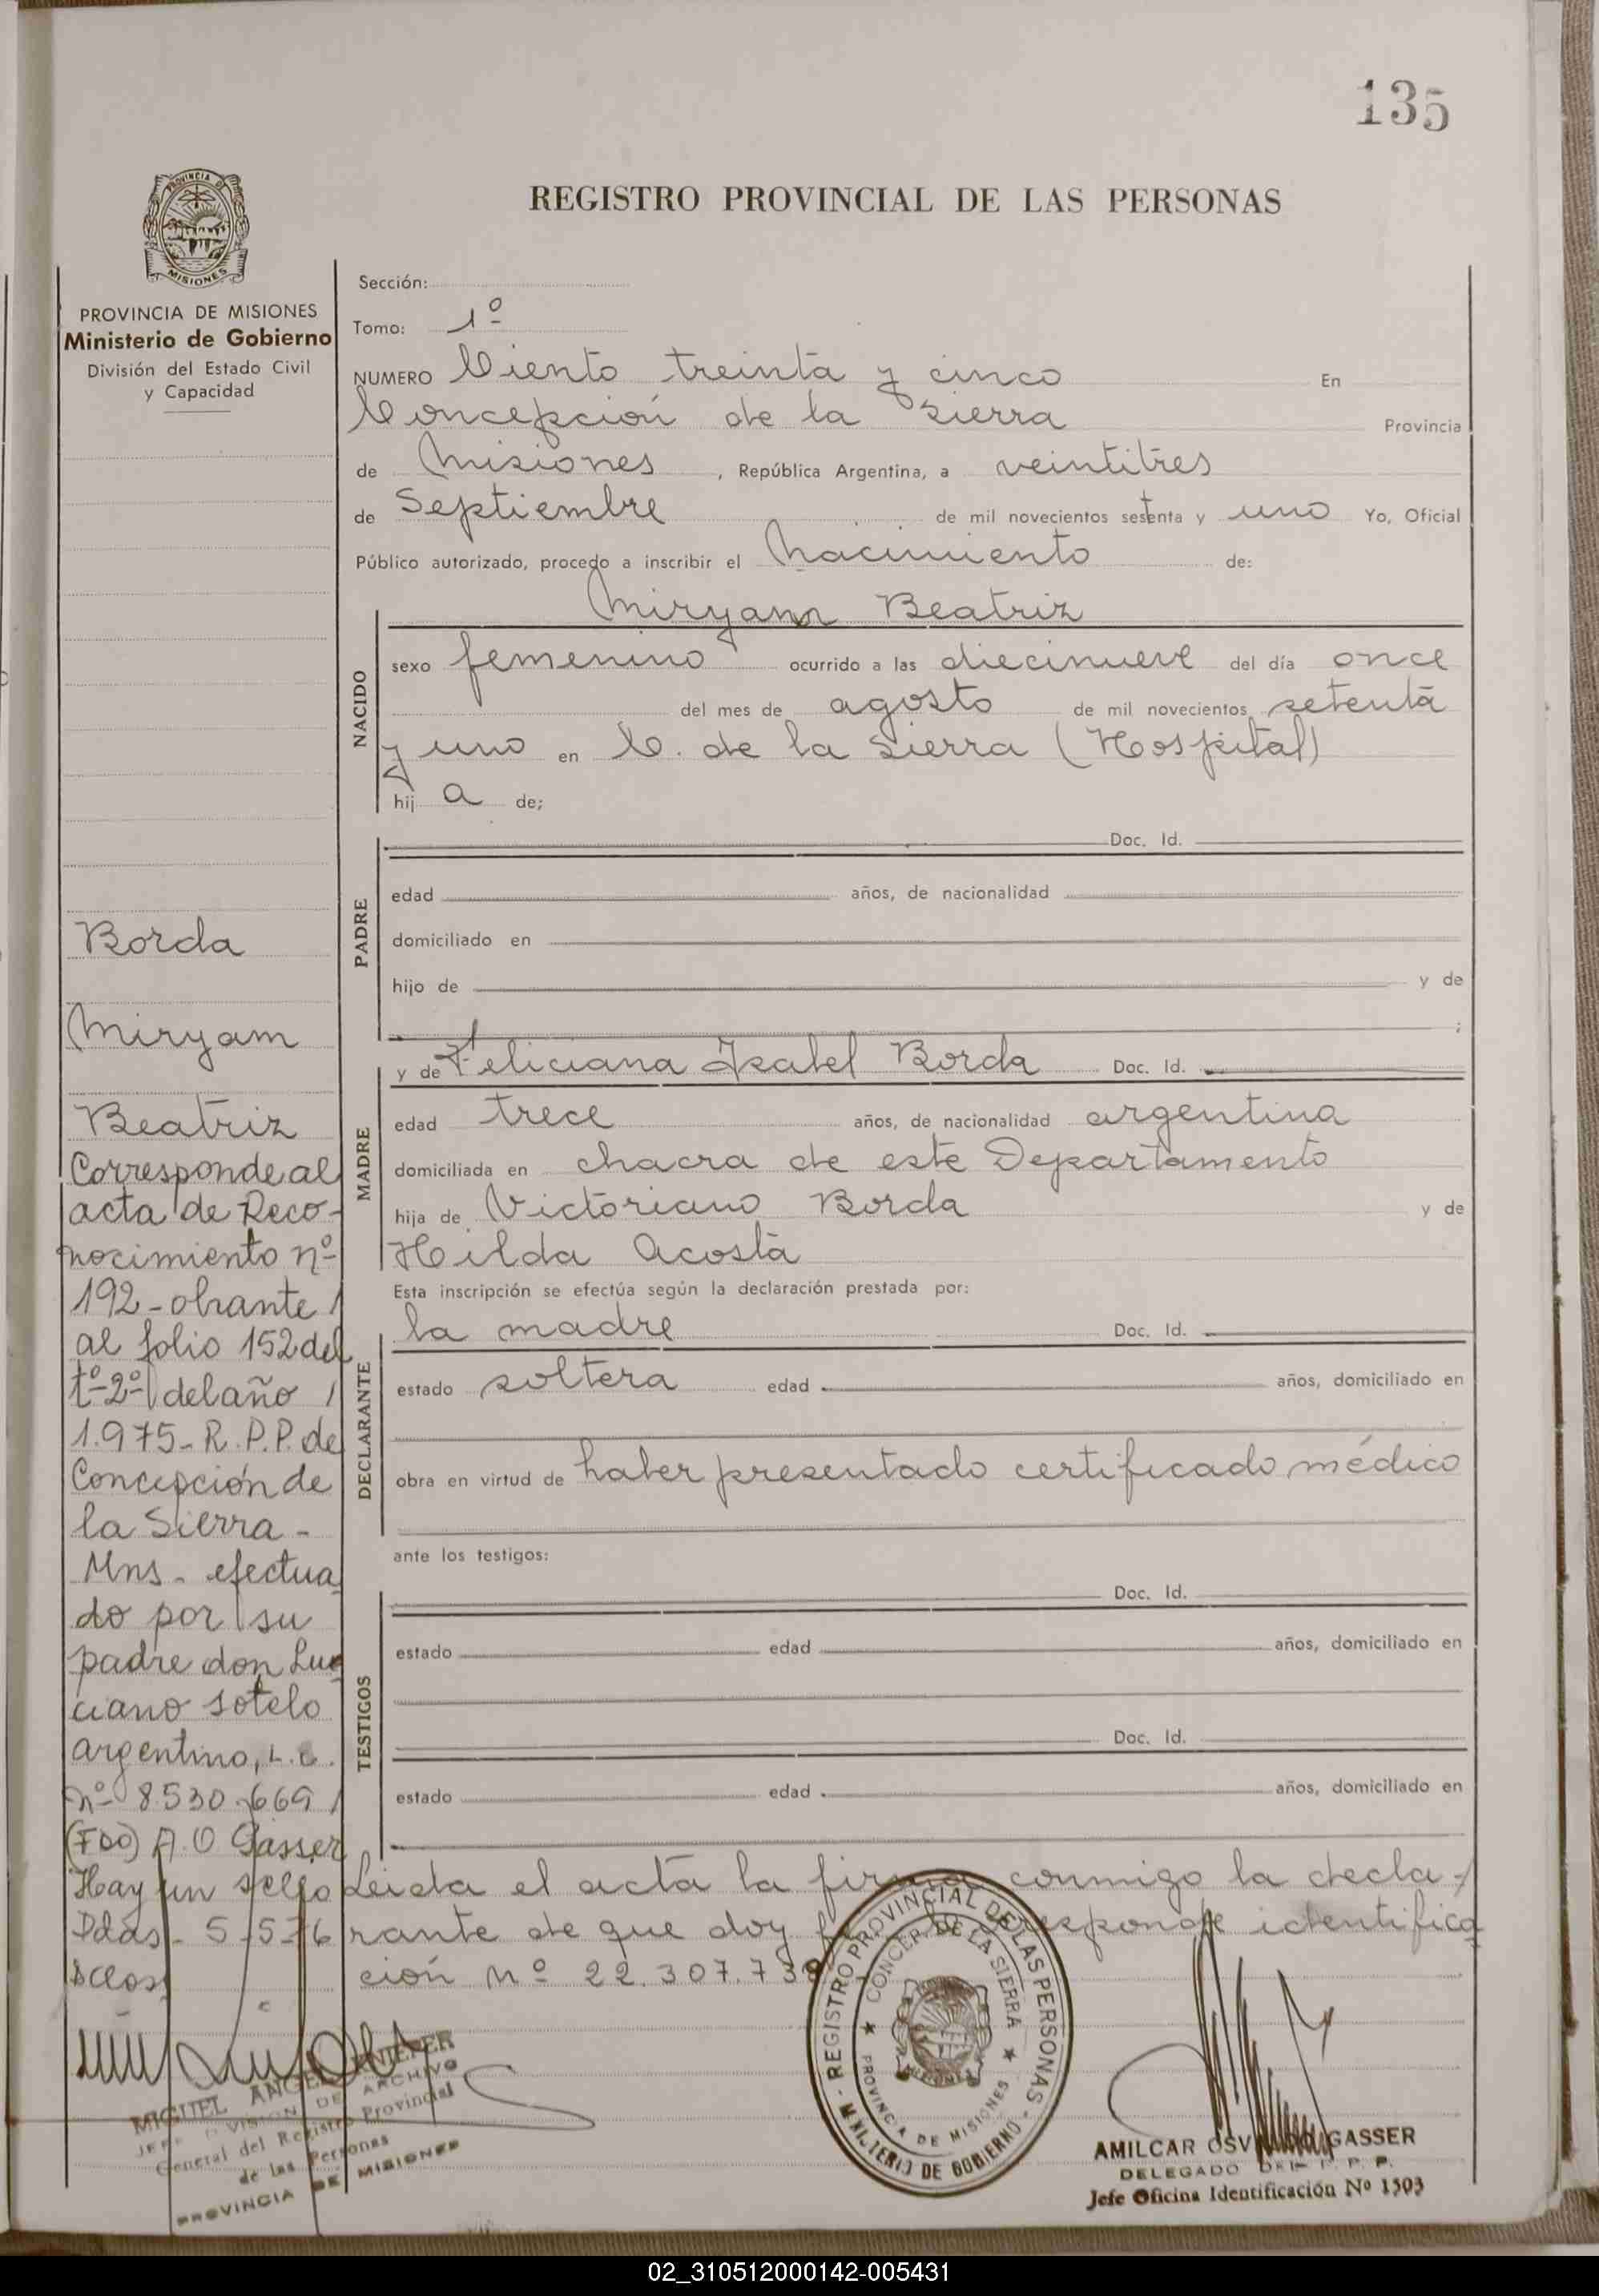 135
REGISTRO PROVINCIAL DE LAS PERSONAS
PROVINCIA DE
MISIONES
PROVINCIA DE MISIONES
Ministerio de Gobierno
División del Estado Civil
y Capacidad
Sección:
Tomo: 1º
NUMERO Ciento treinta y cinco En
Concepción de la Sierra Provincia
de Misiones, República Argentina, a veintitres
de Septiembre de mil novecientos setenta y uno Yo, Oficial
Público autorizado, procedo a inscribir el Nacimiento de:
Miryam Beatriz
NACIDO
sexo femenino ocurrido a las diecinueve del día once
del mes de agosto de mil novecientos setenta
y uno en C. de la Sierra (Hospital)
hij a de;
PADRE
Doc. Id.
edad años, de nacionalidad
domiciliado en
hijo de y de
;
MADRE
y de Feliciana Isabel Borda Doc. Id.
edad trece años, de nacionalidad argentina
domiciliada en chacra de este Departamento
hija de Victoriano Borda y de
Hilda Acosta
Esta inscripción se efectúa según la declaración prestada por:
DECLARANTE
la madre Doc. Id.
estado soltera edad años, domiciliado en
obra en virtud de haber presentado certificado médico
ante los testigos:
TESTIGOS
Doc. Id.
estado edad años, domiciliado en
Doc. Id.
estado edad años, domiciliado en
Leida el acta la firma conmigo la decla-
rante de que doy corresponde identifica
ción Nº 22.307.738
Borda
Miryam
Beatriz
Corresponde al
acta de Reco-
nocimiento nº
192-obrante
al folio 152 del
tº-2º- del año
1.975-R.P.P. de
Concepción de
la Sierra-
Mns- efectua
do por su
padre don Lu
ciano Sotelo
argentino, L.E.
nº 8.530.669
(FDO) A.O Gasser
Hay un sello
Pdas- 5-5-76
MIGUEL ANGEL
JEFE DIVISION DE ARCHIVO
General del Registro Provincial
de las Personas
PROVINCIA DE MISIONES
REGISTRO PROVINCIAL DE LAS PERSONAS
MINISTERIO DE GOBIERNO
CONCEP. DE LA SIERRA
PROVINCIA DE MISIONES
AMILCAR OSVALDO GASSER
DELEGADO DEL R. P. P.
Jefe Oficina Identificación Nº 1503
02_310512000142-005431